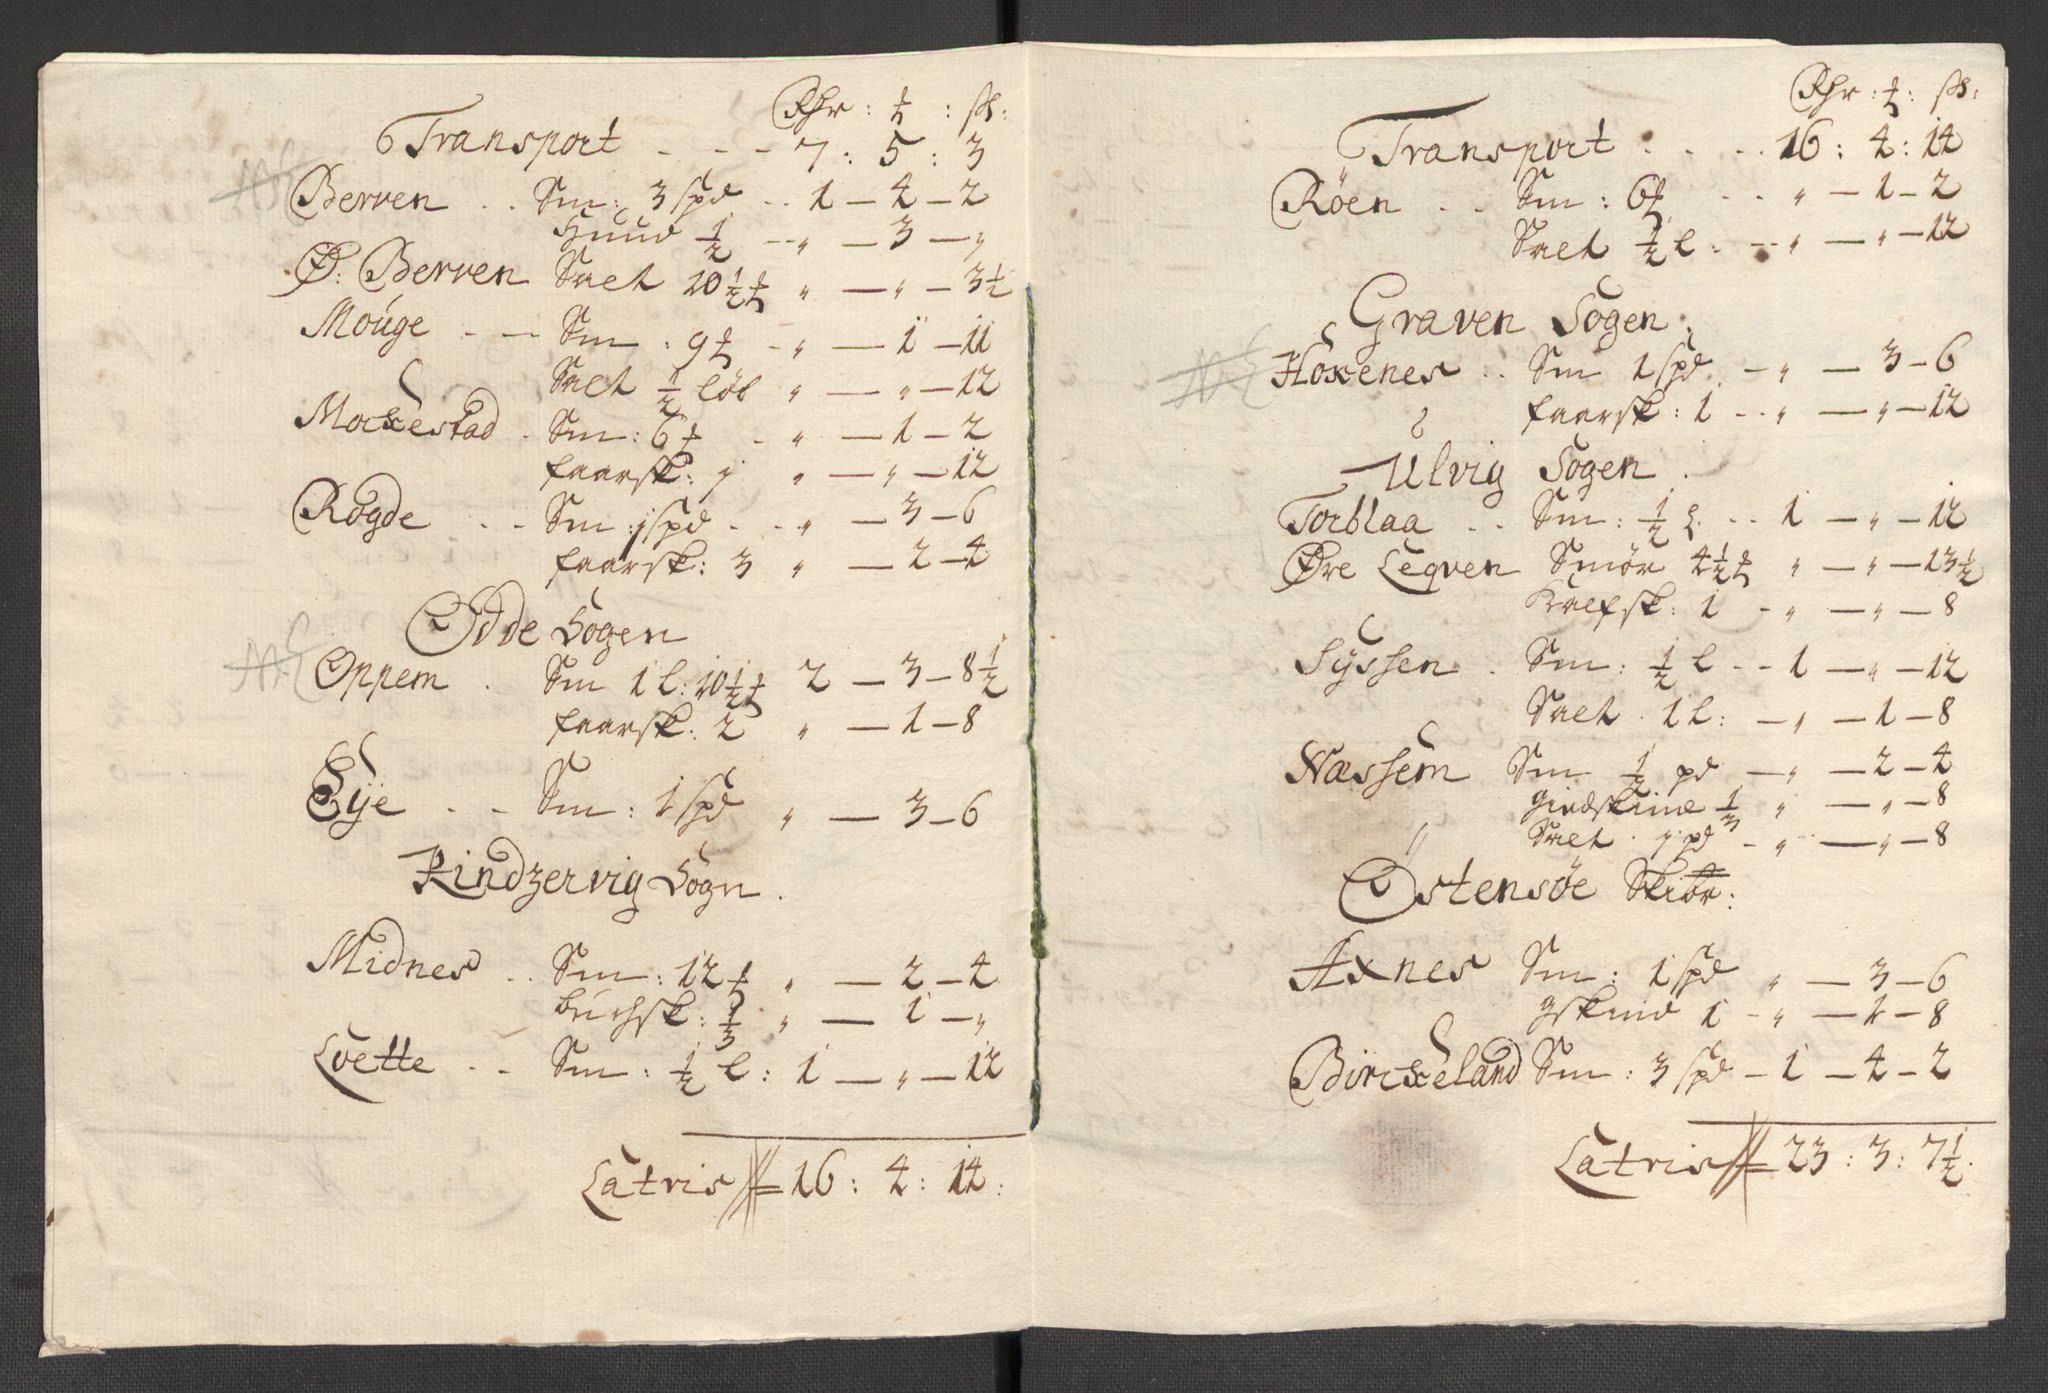 Rhr : ƚ : sk:
Transport - - - 7 : 5 : 3
Berven . . Sm: 3 spd . . 1 — 4 — 2
Huud 1/2 -- „ — 3 — „
Ø: Berven Salt 10 1/2 ƚ „ — „ — 3 1/2
Mouge - — Sm : 9 ƚ - „ — 1 — 11
Salt 1/2 løb „ — „ — 12
Mockestad . Sm: 6 ƚ - „ — 1 — 2
faarsk: 1 „ — „ — 12
Rogde - - Sm : 1 spd - - „ — 3 — 6
faarsk: 3 „ — 2 — 4
Odde Sogen
Oppem . Sm 1 l: 10 1/2 ƚ 2 — 3 — 8 1/2
faarsk: 2 „ — 1 — 8
Eije - - Sm : 1 spd „ — 3 — 6
Kindzervig Sogn .
Midnes . . Sm: 12 ƚ „ — 2 — 4
buchsk: 1/3 „ — 1 — „
Loette - - Sm : 1/2 l : 1 — „ — 12
Latris = 16 : 4 : 14 :
Rhr : ƚ : sk:
Transport . - . . 16 : 4 : 14
Röen . . Sm : 6 ƚ - . . „ — 1 — 2
Salt 1/2 l : — „ — „ — 12
Graven Sogen .
Hoxenes . . Sm 1 spd — „ — 3 — 6
faarsk: 1 - . „ — „ — 12
Ulvig Sogen .
Torblaa . . Sm : 1/2 l . . 1 — „ — 12
Øre Leqven Smör 4 1/2 ƚ „ — „ — 13 1/2
Kalfsk: 1 - „ — „ — 8
Sÿssen . Sm : 1/2 l - - 1 — „ — 12
Salt . 1 l: — „ — 1 — 8
Næssem Sm 1/2 pd — „ — 2 — 4
giedskind 1/3 „ — „ — 8
Salt . 1 pd - „ — „ — 8
Östensöe Skibr:
Axnes Sm : 1 spd „ — 3 — 6
gskind 1 - „ — 1 — 8
Birckeland Sm : 3 spd — 1 — 4 — 2
Latris = 23 : 3 : 7 1/2 :